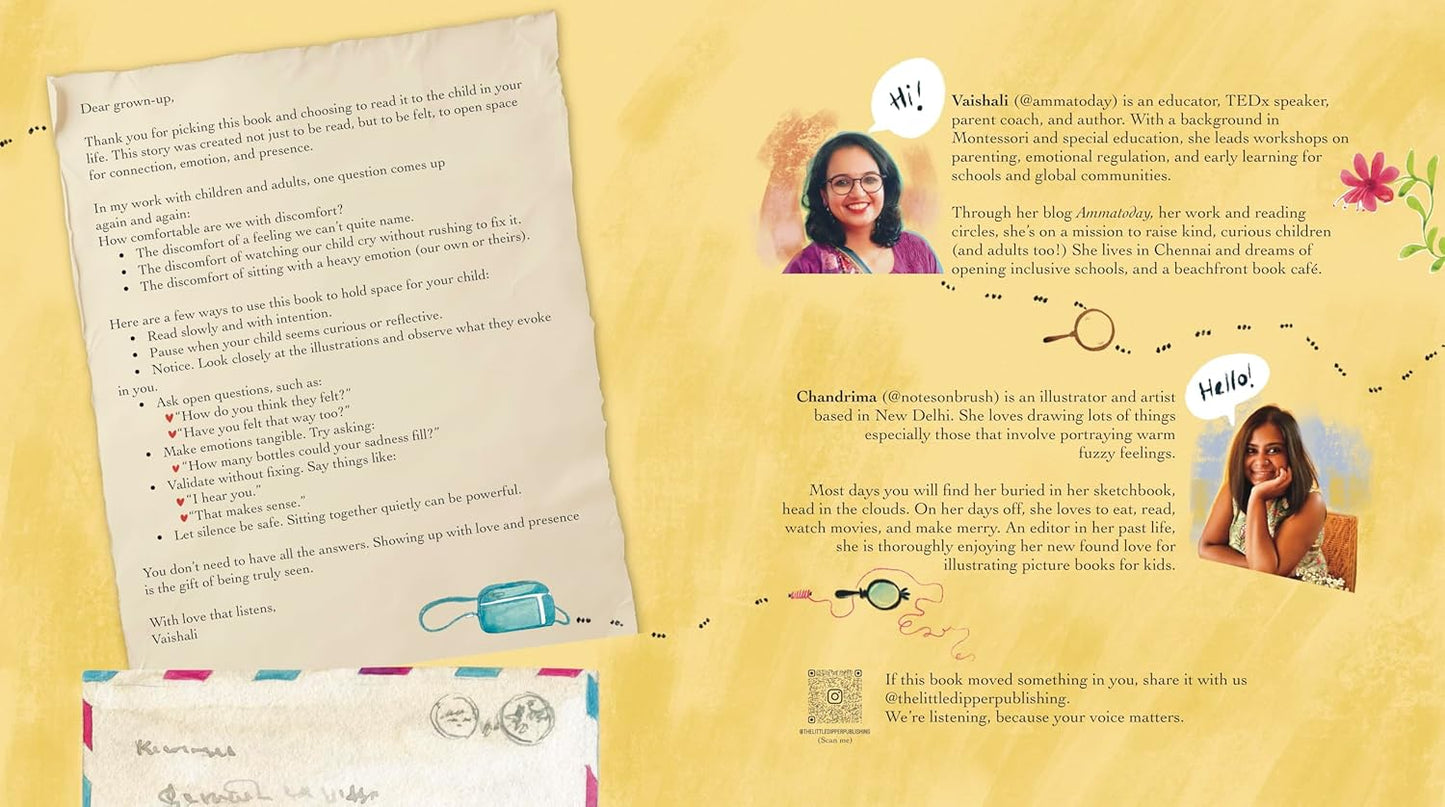 Dear grown-up,
Thank you for picking this book and choosing to read it to the child in your
life. This story was created not just to be read, but to be felt, to open space
for connection, emotion, and presence.
In my work with children and adults, one question comes up
again and again:
How comfortable are we with discomfort?
• The discomfort of a feeling we can't quite name.
• The discomfort of watching our child cry without rushing to fix it.
• The discomfort of sitting with a heavy emotion (our own or theirs).
Here are a few ways to use this book to hold space for your child:
• Read slowly and with intention.
• Pause when your child seems curious or reflective.
• Notice. Look closely at the illustrations and observe what they evoke
in you.
• Ask open questions, such as:
♥“How do you think they felt?”
♥“Have you felt that way too?”
• Make emotions tangible. Try asking:
♥“How many bottles could your sadness fill?”
• Validate without fixing. Say things like:
♥“I hear you.”
♥“That makes sense.”
• Let silence be safe. Sitting together quietly can be powerful.
You don't need to have all the answers. Showing up with love and presence
is the gift of being truly seen.
With love that listens,
Vaishali
Hi!
Vaishali (@ammatoday) is an educator, TEDx speaker,
parent coach, and author. With a background in
Montessori and special education, she leads workshops on
parenting, emotional regulation, and early learning for
schools and global communities.
Through her blog Ammatoday, her work and reading
circles, she's on a mission to raise kind, curious children
(and adults too!) She lives in Chennai and dreams of
opening inclusive schools, and a beachfront book café.
Hello!
Chandrima (@notesonbrush) is an illustrator and artist
based in New Delhi. She loves drawing lots of things
especially those that involve portraying warm
fuzzy feelings.
Most days you will find her buried in her sketchbook,
head in the clouds. On her days off, she loves to eat, read,
watch movies, and make merry. An editor in her past life,
she is thoroughly enjoying her new found love for
illustrating picture books for kids.
If this book moved something in you, share it with us
@thelittledipperpublishing.
We're listening, because your voice matters.
@THELITTLEDIPPERPUBLISHING
(Scan me)